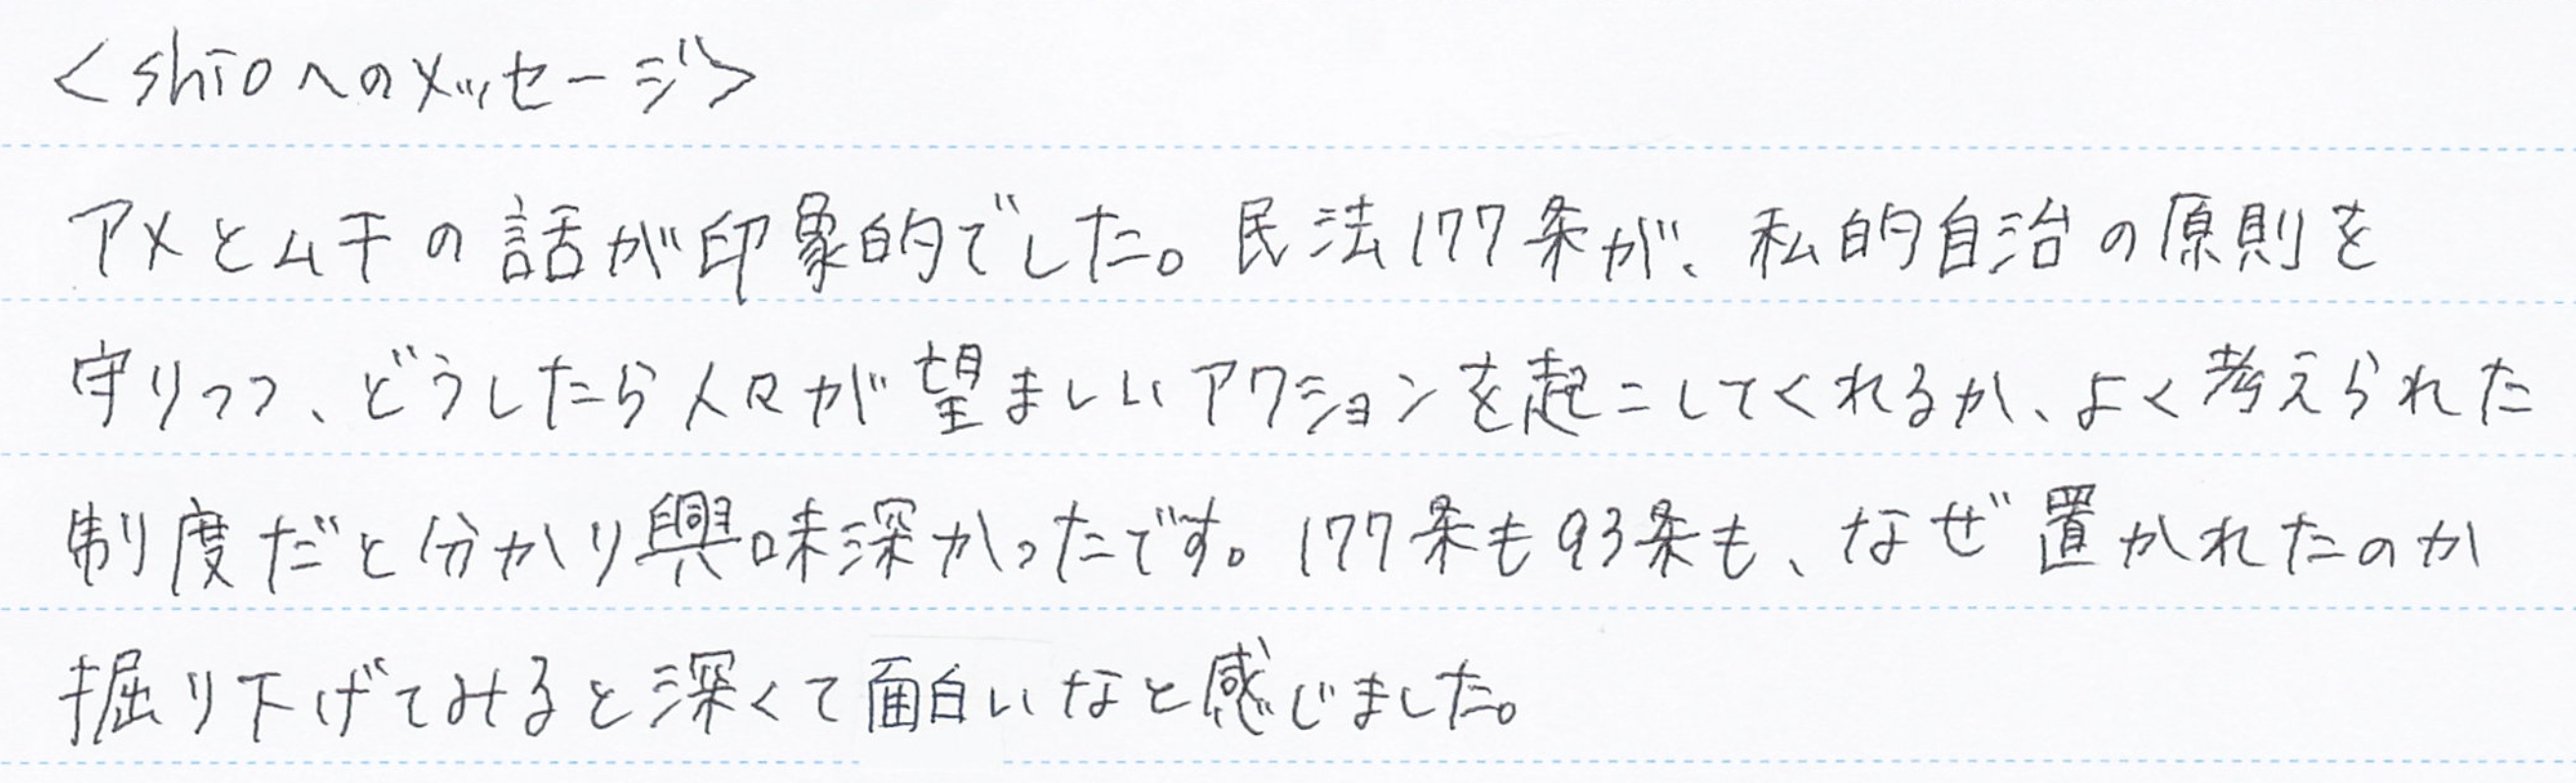 <shioへのメッセージ>
アメとムチの話が印象的でした。民法177条が、私的自治の原則を
守りつつ、どうしたら人々が望ましいアクションを起こしてくれるか、よく考えられた
制度だと分かり興味深かったです。177条も93条も、なぜ置かれたのか
掘り下げてみると深くて面白いなと感じました。